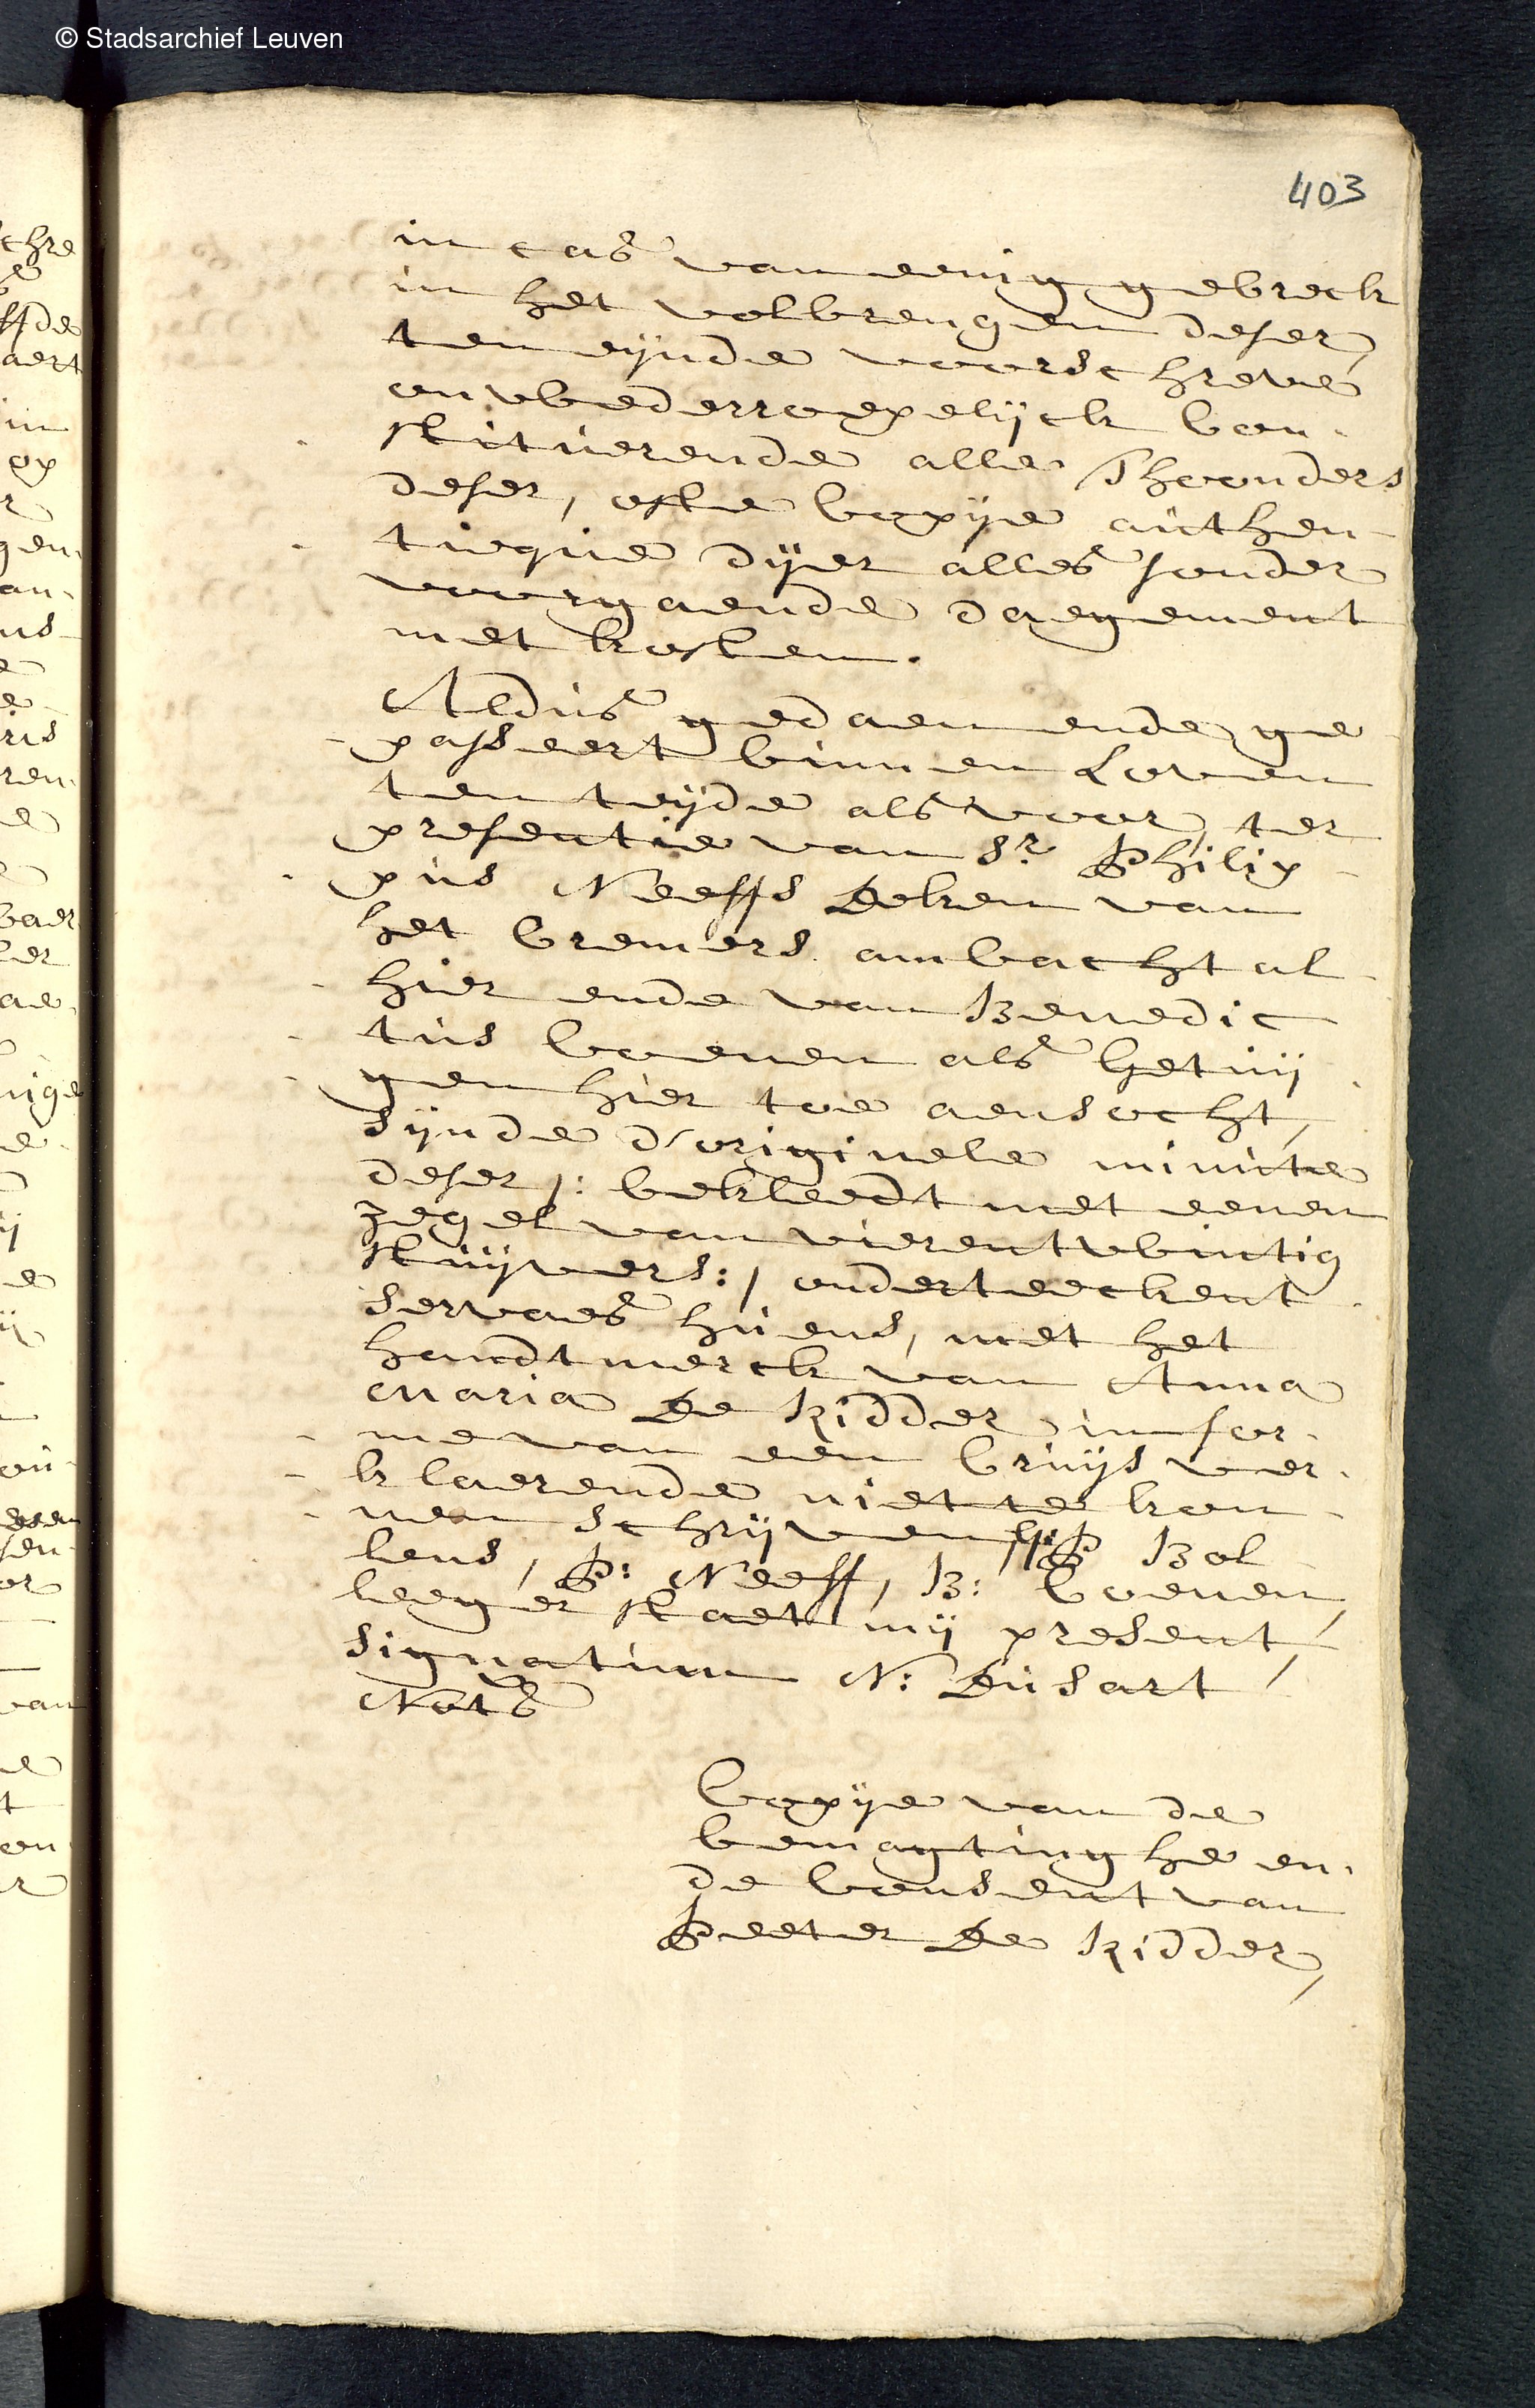 © Stadsarchief Leuven
403
in cas van eenig gebreck
in het volbrengen deser,
ten eijnde voorschreve
onwederroepelijck con-
stituerende alle Thoonders
deser, ofte copije authen-
tieque dijer alles sonder
voorgaende daegement
met kosten.
Aldus gedaen ende ge
passeert binnen Loven
ten teijde als voor, ter
presentie van Sr Philip-
pus Neeffs deken van
het Cremers ambacht al-
hier ende van Benedic
tus Coenen als getuij
gen hier toe aensocht,
sijnde d'originele minute
deser /: bekleedt met eenen
zegel van vierentwintig
stuijvers :/ onderteeckent
Servaes Huens, met het
handtmerck van Anna
Maria De Ridder in for-
me van een Cruijs ver-
klaerende niet te kon-
nen schrijven, P Bol
lens, P: Neeff, B: Coenen,
leeger staet mij present,
signatum N: Dusart,
Nots
Copije van de
bemagtinghe en-
de Consent van
Peeter De Ridder,